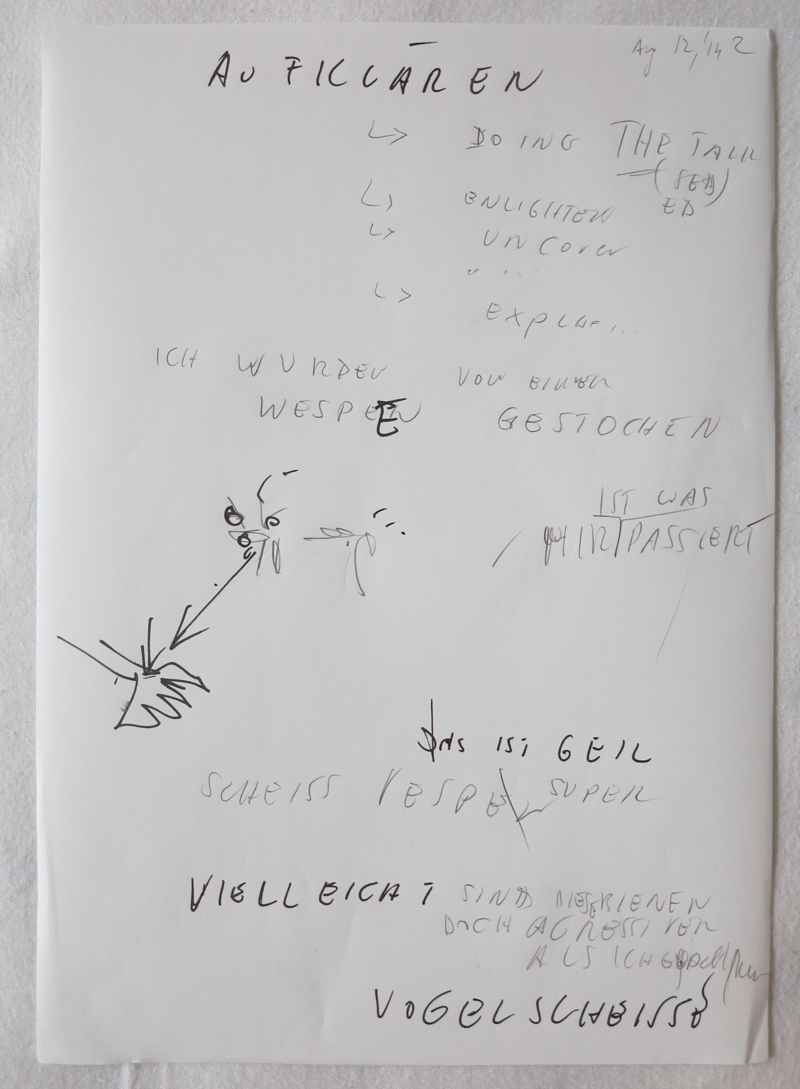 Aug 12, '14 2
AUFKLĀREN
↳ DOING THE TALK
(SEB)
ED
↳ ENLIGHTEN
↳ UNCOVER
" "
↳ EXPLAI...
ICH WURDEN VON EINEN
WESPEN GESTOCHEN
IST WAS
MIR PASSIERT
DAS IST GEIL
SCHEISS VESPE SUPER
VIELLEICHT SIND DIESE BIENEN
DOCH AGRESSIVER
ALS ICH
VOGELSCHEISSE